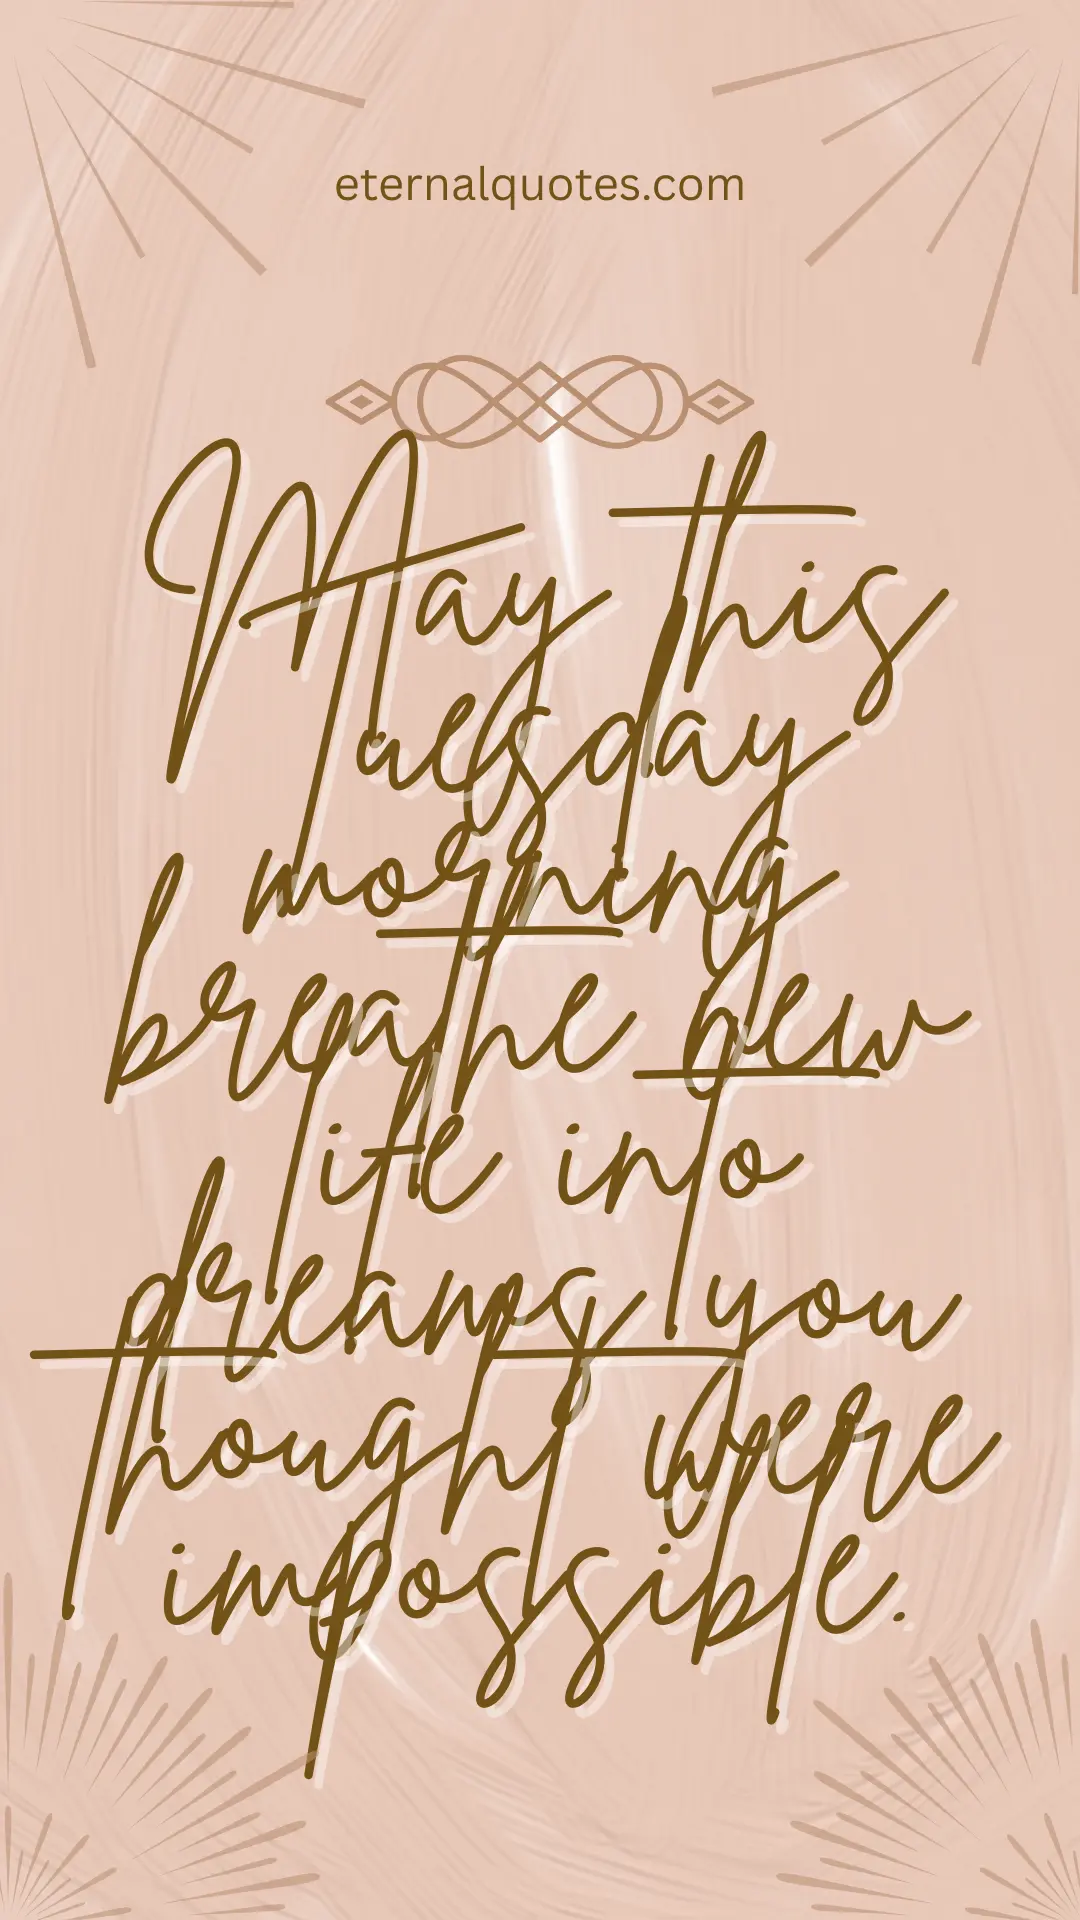 eternalquotes.com
May this
Tuesday
morning
breathe new
life into
dreams you
thought were
impossible.